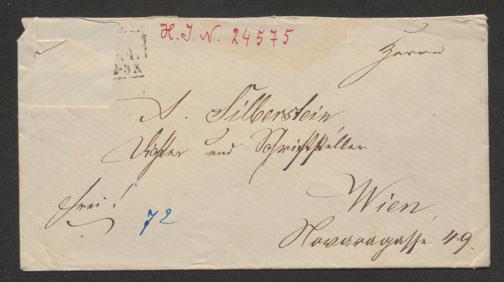 H. I. N. 24575
Herrn
A. Silberstein
Dichter und Schriftsteller
Wien
Novaragasse 49.
frei!
72